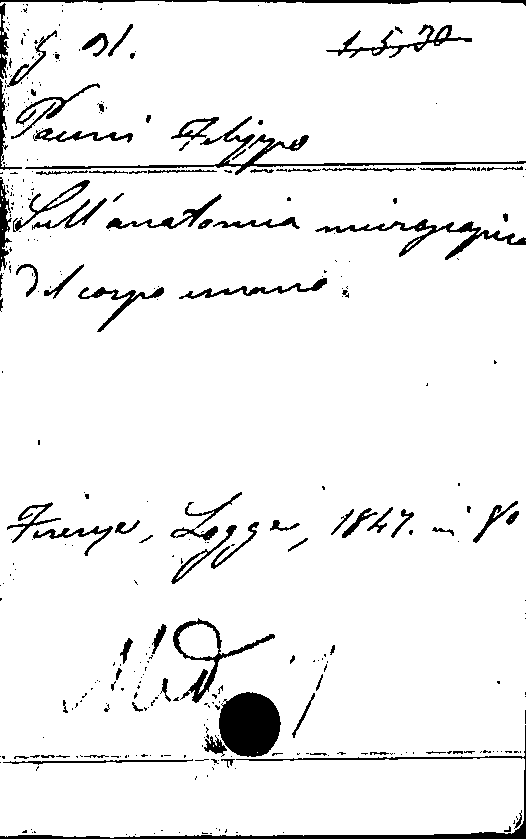 1,5,30
Pacini Filippo
Sull'anatomia microscopica
del corpo umano
Firenze, Logge, 1847. in 8o